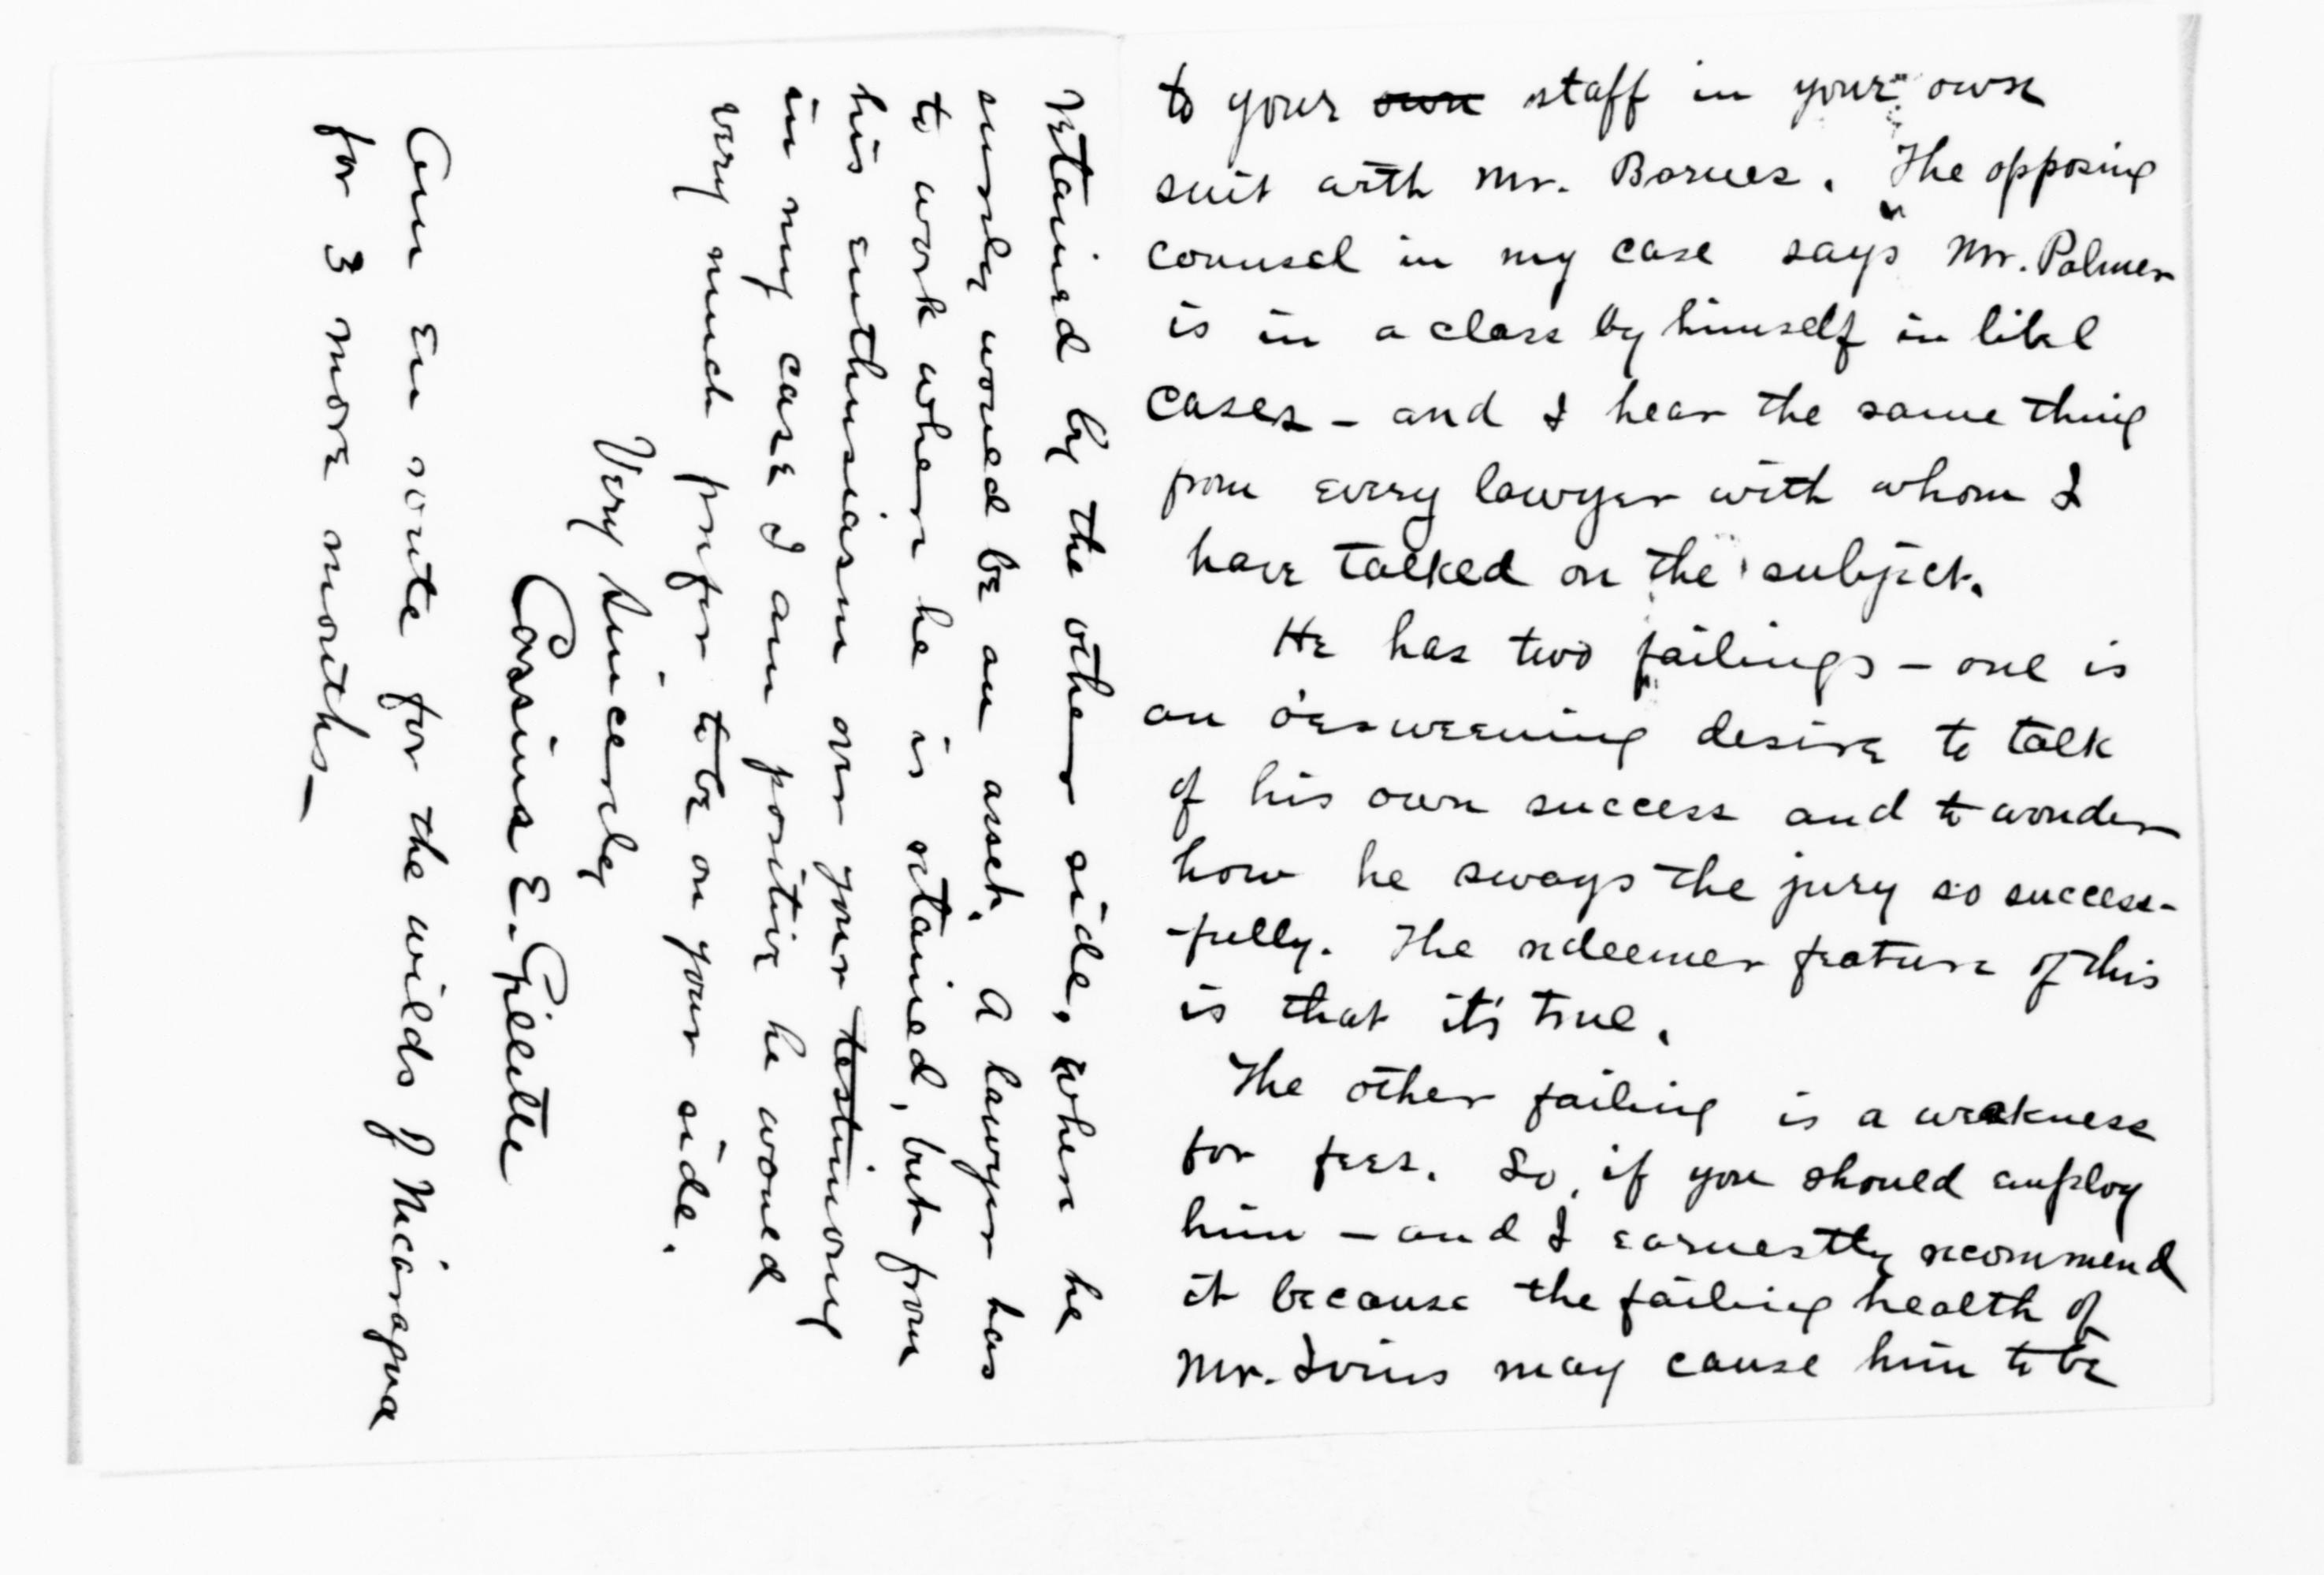 to your own staff in your own
suit with Mr. Barnes. The opposing
counsel in my case says Mr. Palmer
is in a class by himself in libel
cases - and I hear the same thing
from every lawyer with whom I
have talked on the subject.
He has two failings - one is
an o'erweening desire to talk
of his own success and to wonder
how he sways the jury so success-
-fully. The redeemer feature of this
is that it's true.
The other failing is a weakness
for fees. So, if you should employ
him - and I earnestly recommend
it because the failing health of
Mr. Ivins may cause him to be
retained by the other side, when he
surely would be an asset. A lawyer has
to work when he is retained, but from
his enthusiasm over your testimony
in my case I am positive he would
very much prefer to be on your side.
Very sincerely
Cassius E. Gillette
Am en route for the wilds of Nicaragua
for 3 more months -